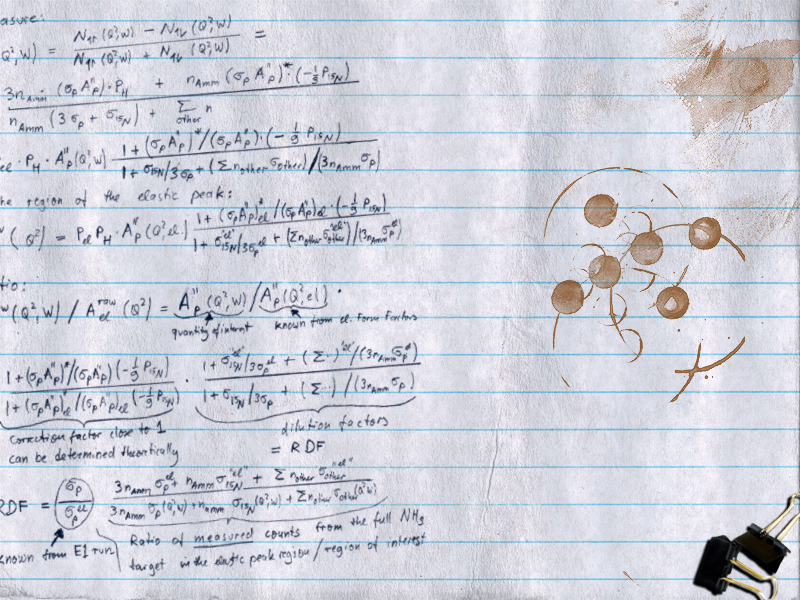 asure:
Q²,W) = N₁⇑(Q²,W) − N₁⇓(Q²,W) / N₁⇑(Q²,W) + N₁⇓(Q²,W) =
3n_Amm (σ_p A_p'')·P_H + n_Amm (σ_p A_p'')*·(−1/9 P_15N) / n_Amm (3σ_p + σ_15N) + Σ_other n
el · P_H · A_p''(Q²,W) 1 + (σ_p A_p'')*/(σ_p A_p'')·(−1/9 P_15N) / 1 + σ_15N/3σ_p + (Σ n_other σ_other)/(3n_Amm σ_p)
he region of the elastic peak:
(Q²) = P_el P_H · A_p''(Q², el.) 1 + (σ_p A_p'')*_el/(σ_p A_p)_el·(−1/9 P_15N) / 1 + σ_15N^"el"/3σ_p^el + (Σ n_other σ_other^"el")/(3n_Amm σ_p^el)
tio:
w (Q²,W) / A_el^raw (Q²) = A_p''(Q²,W) / A_p''(Q², el) ·
quantity of interest known from el. Form Factors
1 + (σ_p A_p'')*/(σ_p A_p)(−1/9 P_15N) / 1 + (σ_p A_p'')*_el/(σ_p A_p'')_el (−1/9 P_15N) · 1 + σ_15N^"el"/3σ_p^el + (Σ··)^"el"/(3n_Amm σ_p^el) / 1 + σ_15N/3σ_p + (Σ··)/(3n_Amm σ_p)
correction factor close to 1 dilution factors
can be determined theoretically = RDF
RDF = σ_p/σ_p^el 3n_Amm σ_p^el + n_Amm σ_15N^"el" + Σ n_other σ_other^"el" / 3n_Amm σ_p(Q²,W) + n_Amm σ_15N(Q²,W) + Σ n_other σ_other(Q²,W)
known from E1 run Ratio of measured counts from the full NH₃
target in the elastic peak region / region of interest